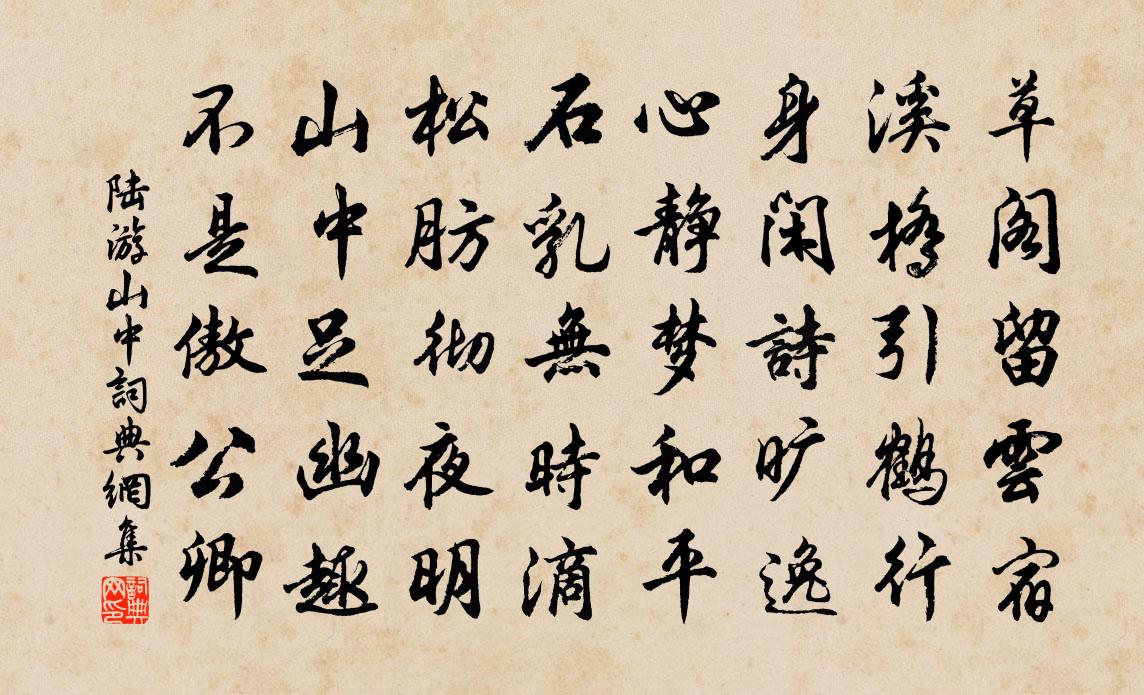 草阁留雲宿
溪橋引鶴行
身闲詩旷逸
心静梦和平
石乳無時滴
松肪彻夜明
山中足幽趣
不是傲公卿
陆游山中詞典網集
詞典网印